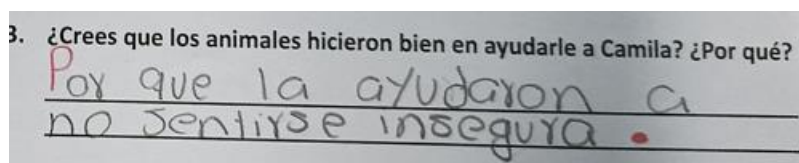 3. ¿Crees que los animales hicieron bien en ayudarle a Camila? ¿Por qué?
Por que la ayudaron a
no sentirse insegura .